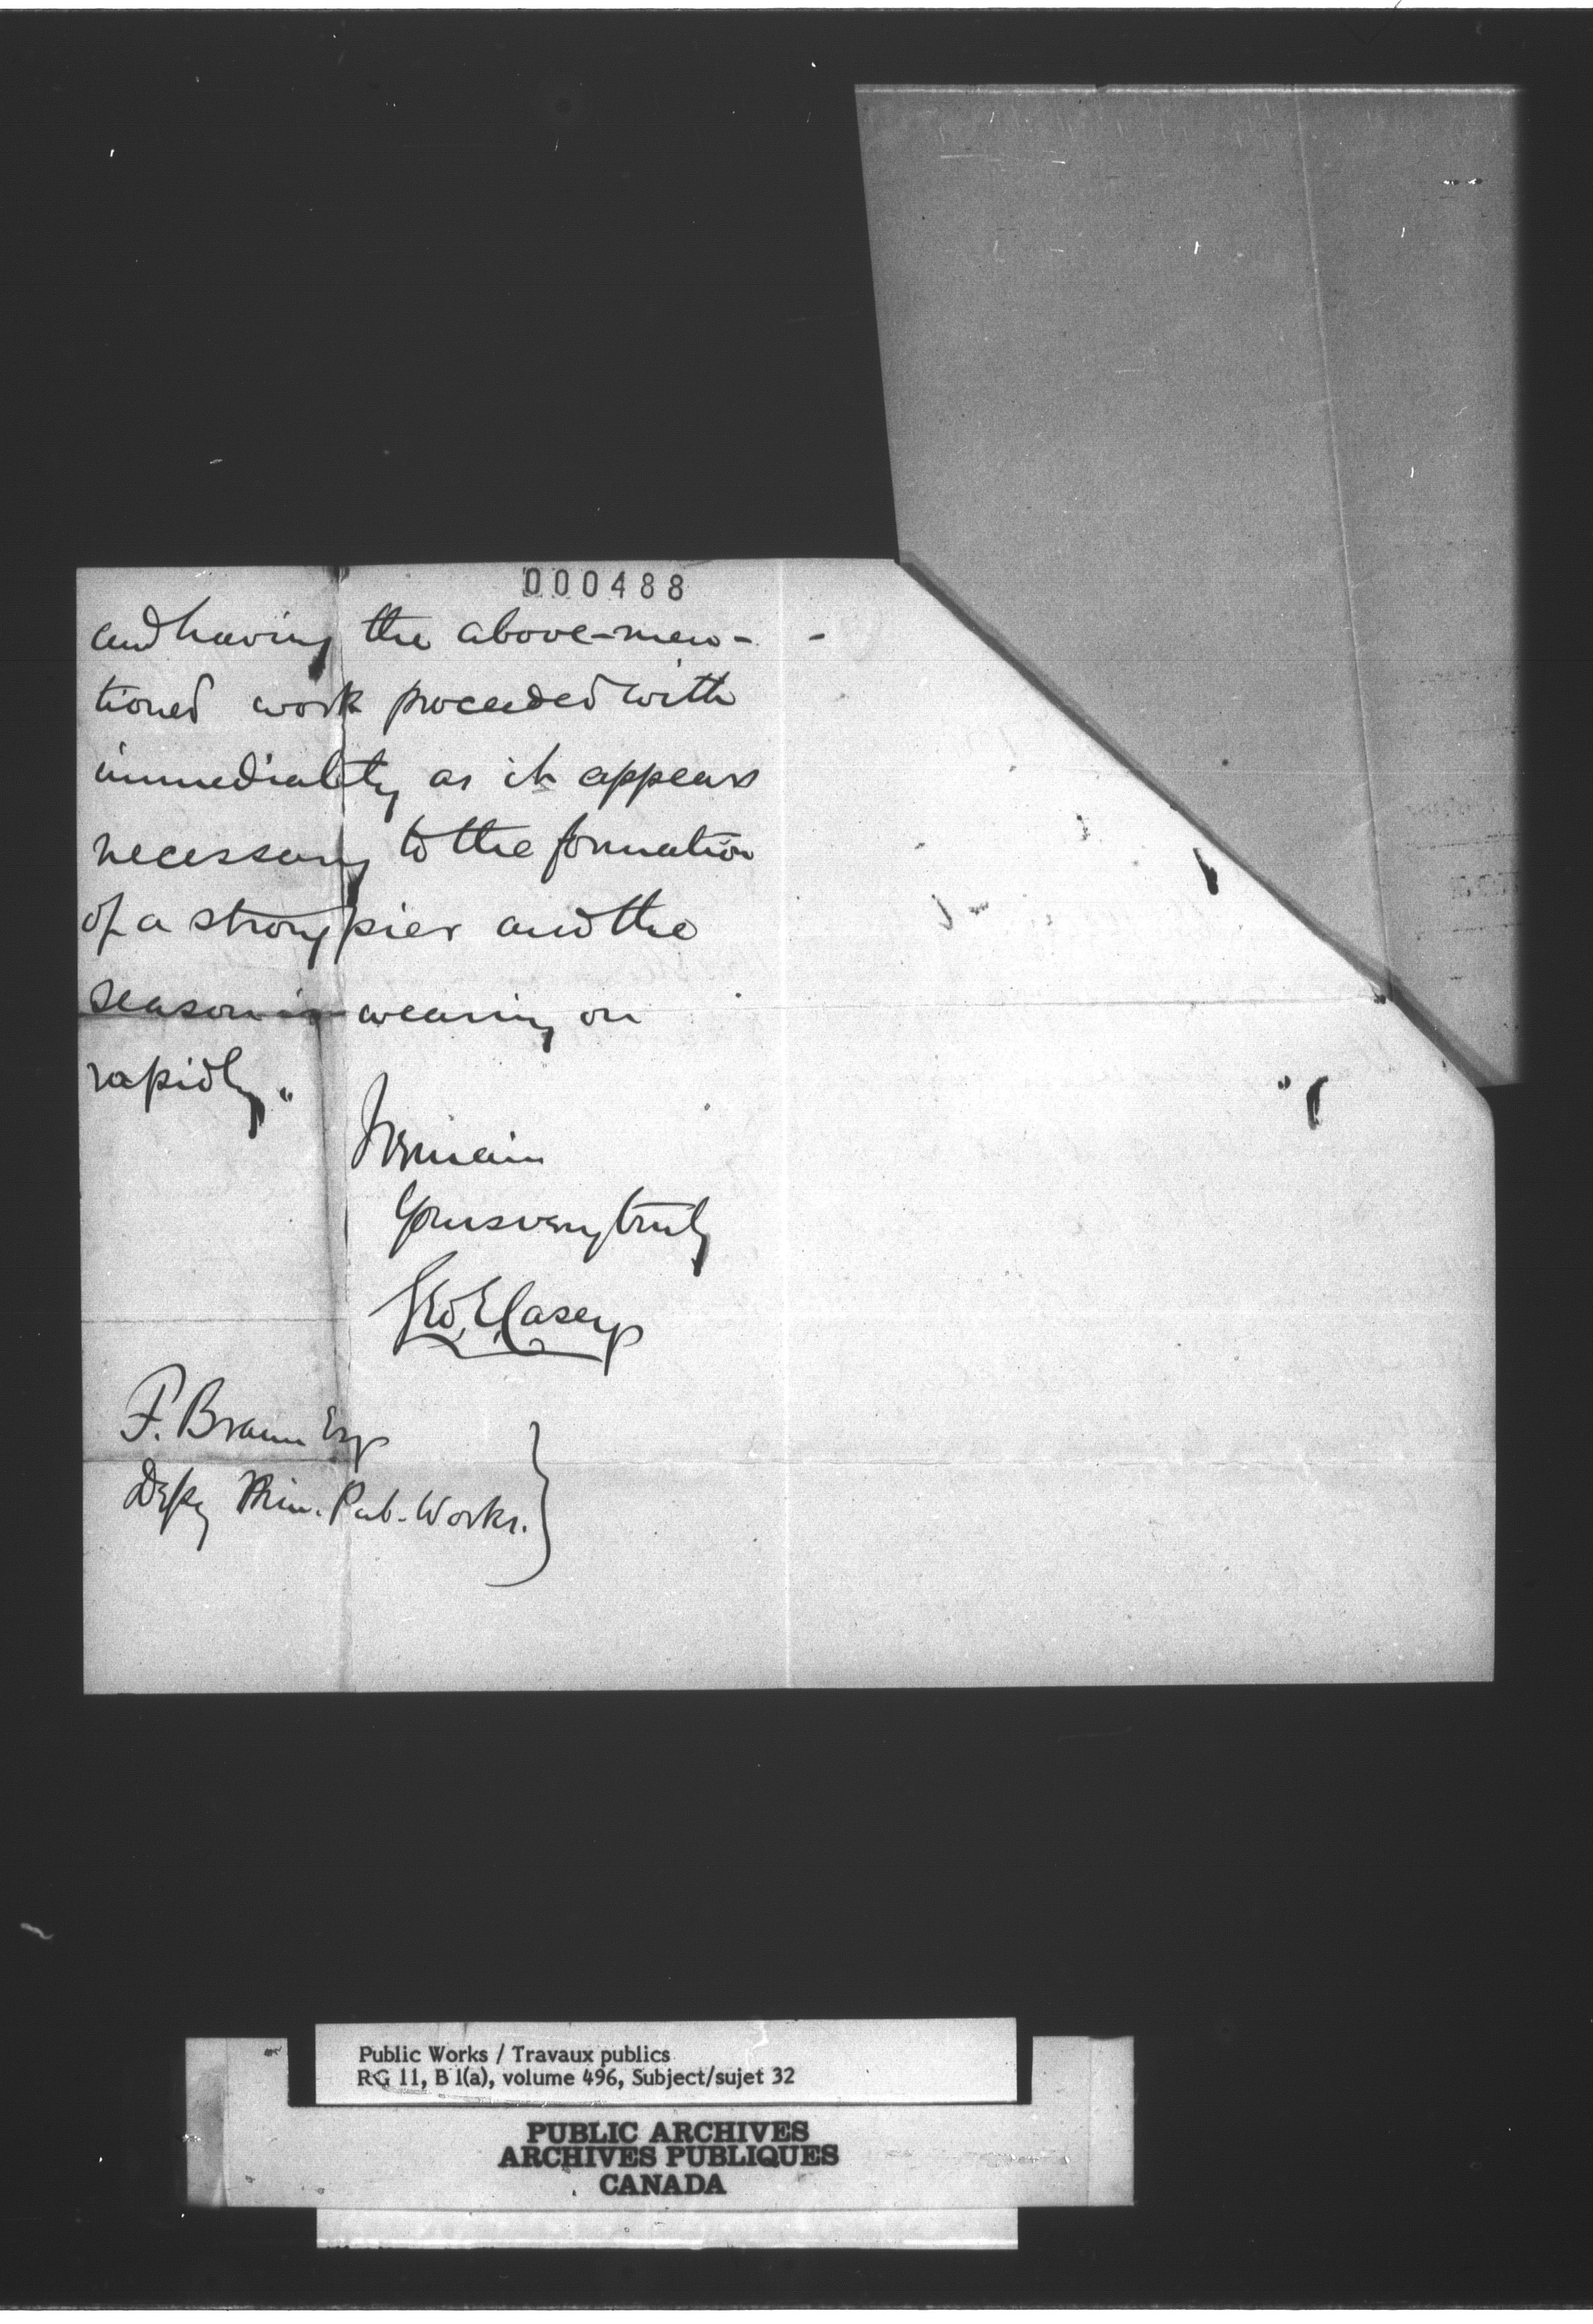 000488
and having the above-men-
tioned work proceeded with
immediately as it appears
necessary to the formation
of a strong pier and the
season is wearing on
rapidly.
I remain
Yours very truly
Geo. E. Casey
F. Braun Esq
Depy Min. Pub. Works.
Public Works / Travaux publics
RG 11, B 1(a), volume 496, Subject/sujet 32
PUBLIC ARCHIVES
ARCHIVES PUBLIQUES
CANADA